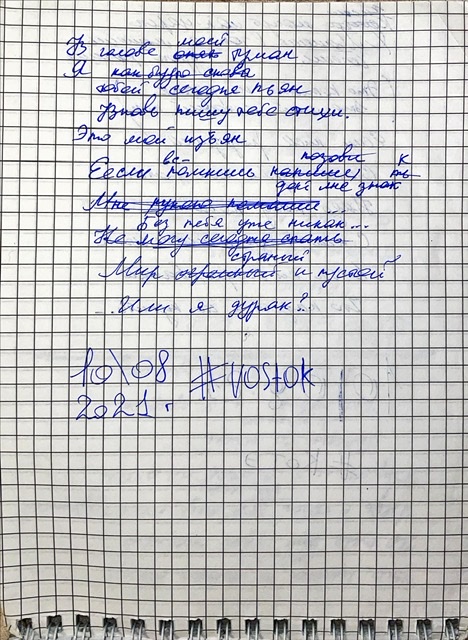 моей
В голове опять туман
Я как будто снова
тобой сегодня пьян
Вновь пишу тебе стихи.
Это мой изъян
всё позови к
Если помнишь напиши,
дай мне знак
Мне рукою помаши...
без тебя уже никак...
Не могу сегодня спать
странный
Мир огромный и пустой
...Или я дурак?..
10\08 #VOSTOK
2021 г